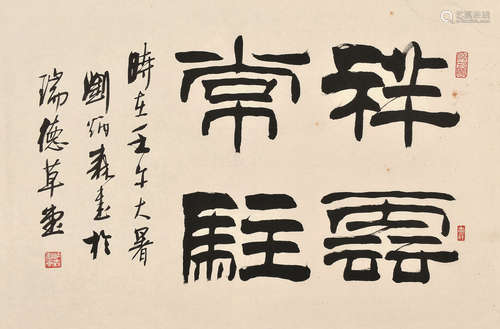 祥雲
常駐
時在壬午大暑
劉炳森書於
瑞德草堂